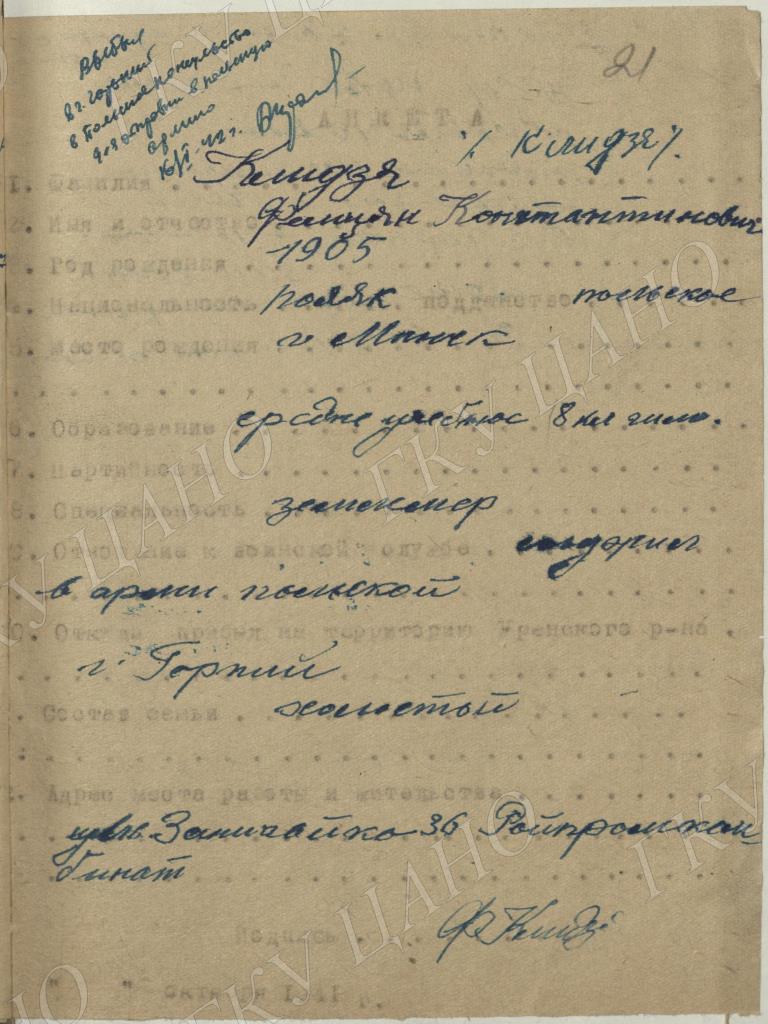 Выбыл
в г. Горький
в Польское консульство
для отправки в польскую
армию
16/II-42 г.
21
АНКЕТА
/ Клидзя /.
1. Фамилия . Клидзя
2. Имя и отчество Фелицян Константинович
3. Год рождения . 1905
4. Национальность поляк подданство польское
5. Место рождения . г. Минск
6. Образование средне учебное 8 кл гимн.
7. Партийность
8. Специальность землемер
9. Отношение к воинской службе .
в армии польской
10. Откуда прибыл на территорию Уренского р-на .
г. Горький
11. Состав семьи . холостый
12. Адрес места работы и жительства
36 Райпромком-
бинат
Подпись . Ф Клидзя
" " октября 1941 г.
ГКУ ЦАНО